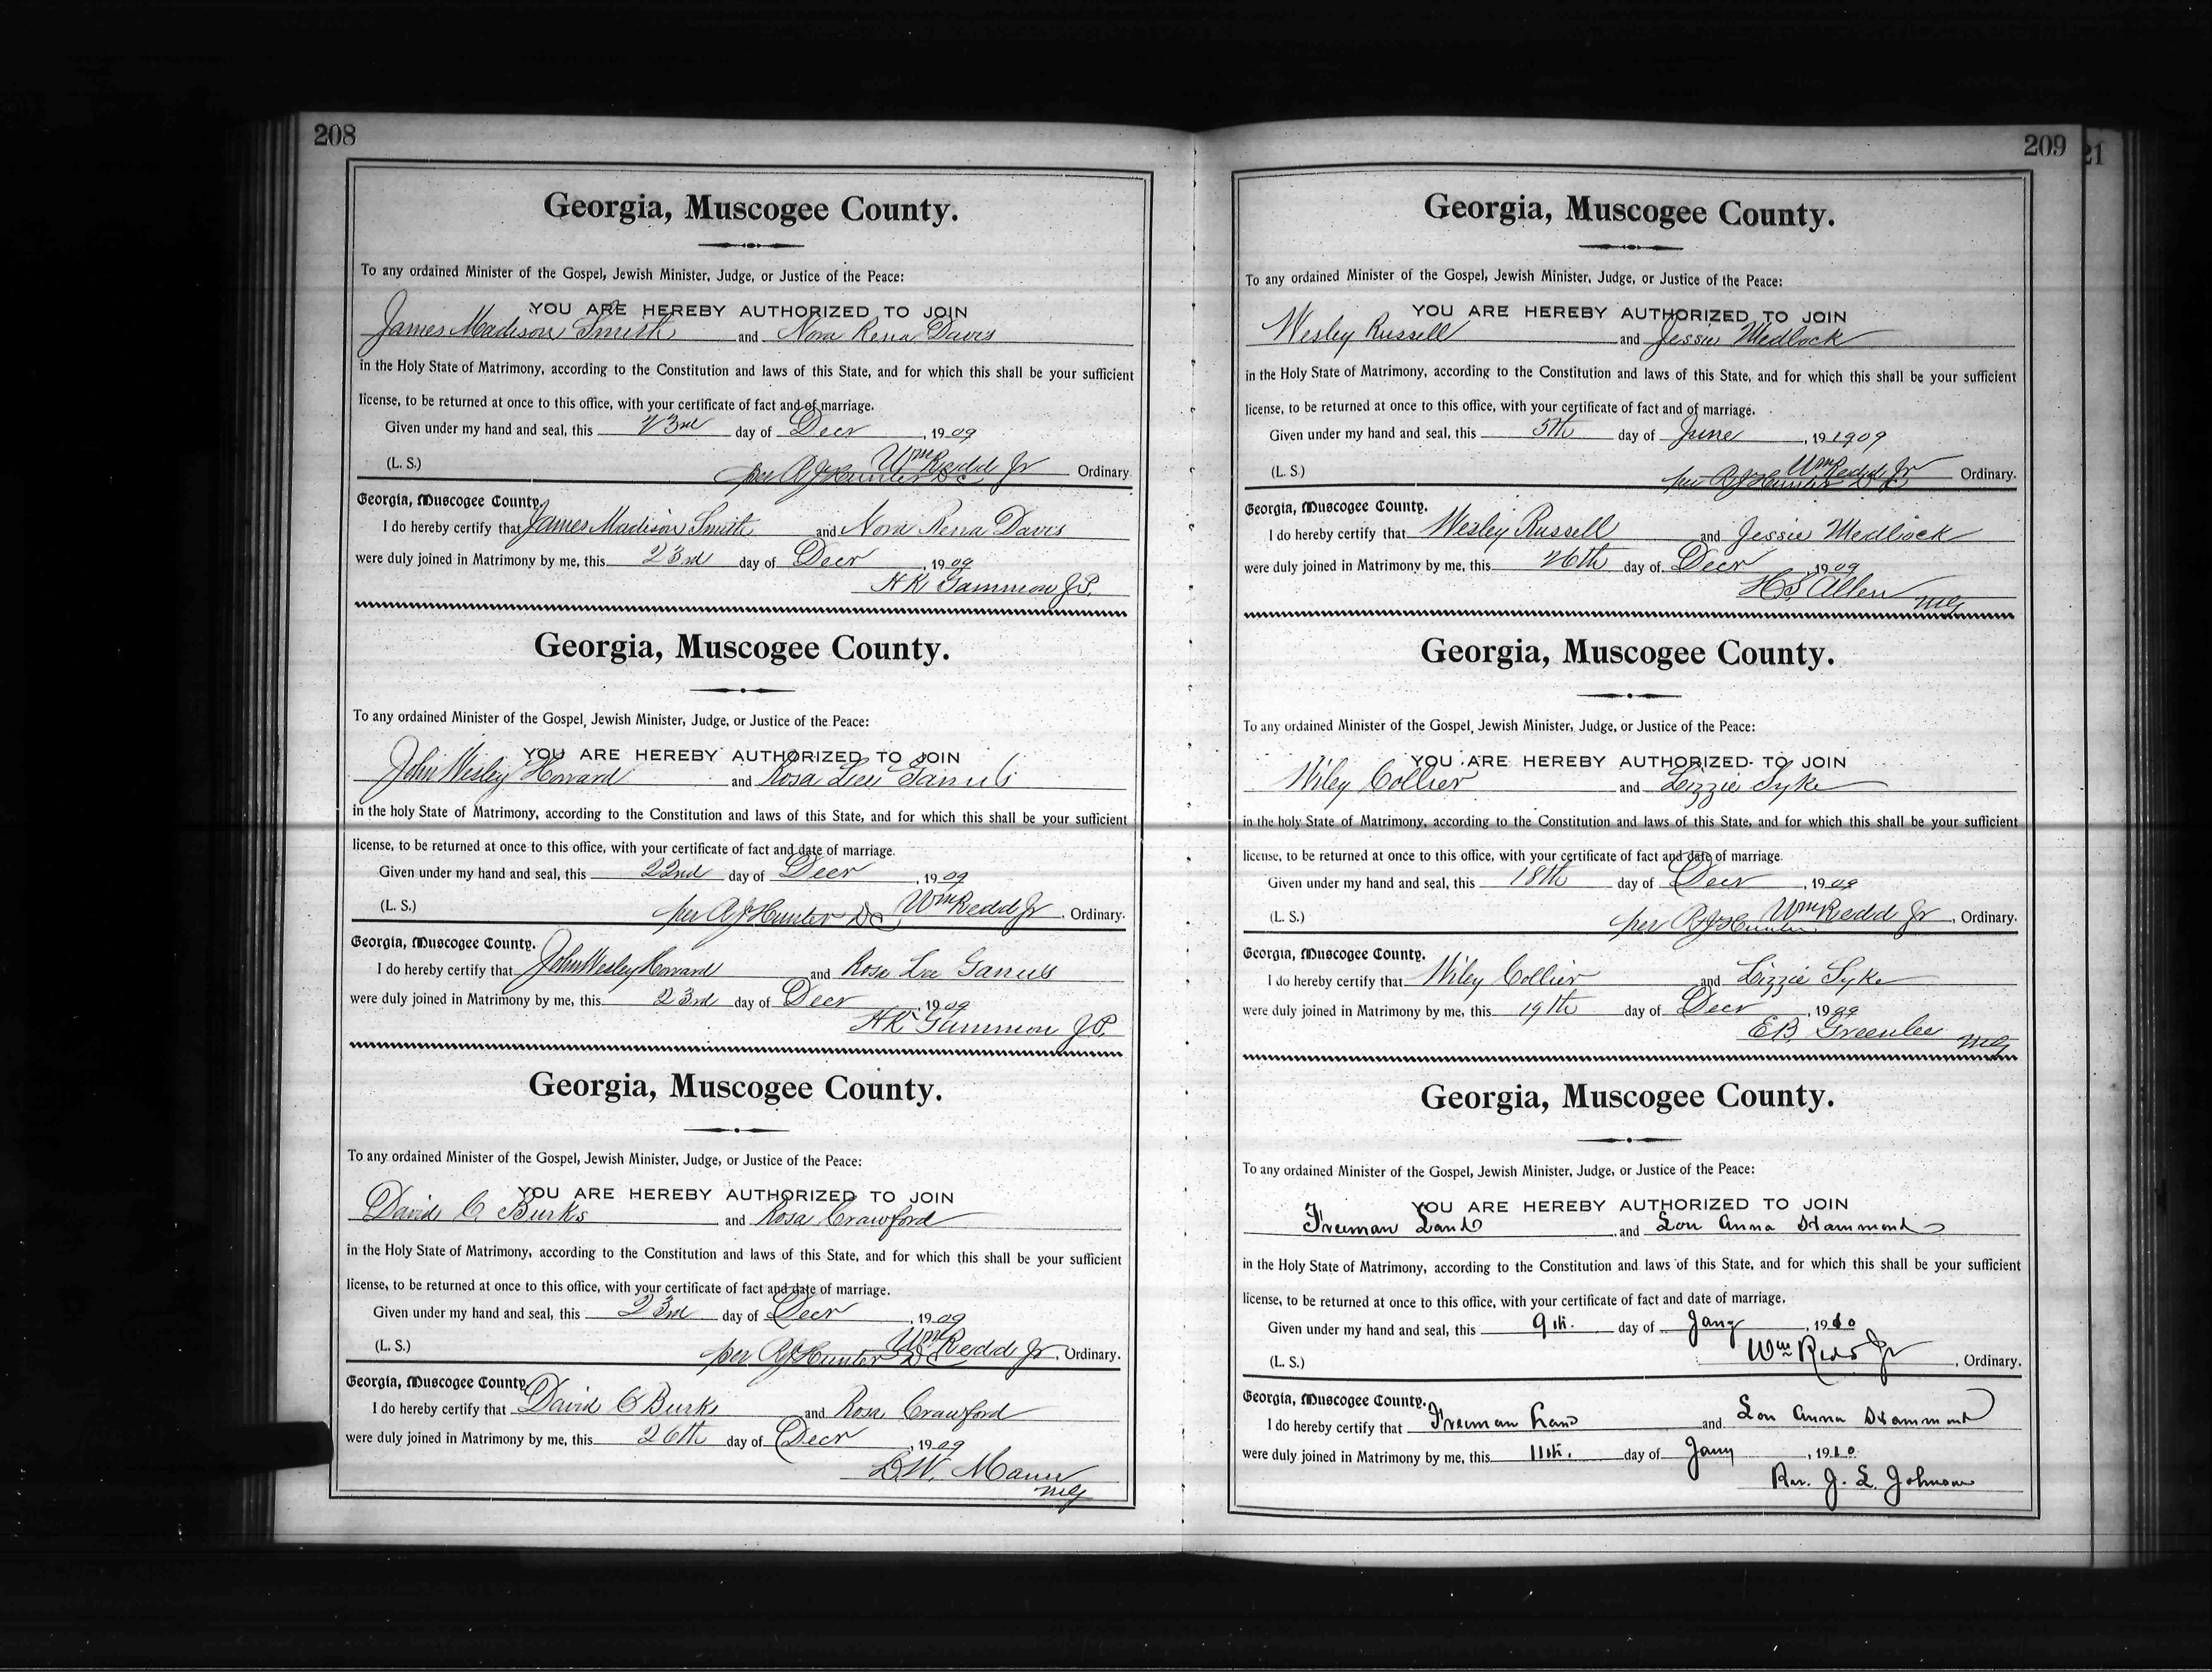 208
Georgia, Muscogee County.
To any ordained Minister of the Gospel, Jewish Minister, Judge, or Justice of the Peace:
YOU ARE HEREBY AUTHORIZED TO JOIN
James Madison Smith and Nora Rena Davis
in the Holy State of Matrimony, according to the Constitution and laws of this State, and for which this shall be your sufficient
license, to be returned at once to this office, with your certificate of fact and of marriage.
Given under my hand and seal, this 23rd day of Decr, 1909
Wm Redd Jr
(L. S.) per R J Hunter D C Ordinary.
Georgia, Muscogee County.
I do hereby certify that James Madison Smith and Nora Rena Davis
were duly joined in Matrimony by me, this 23rd day of Decr, 1909
H K Gammon J P.
Georgia, Muscogee County.
To any ordained Minister of the Gospel, Jewish Minister, Judge, or Justice of the Peace:
YOU ARE HEREBY AUTHORIZED TO JOIN
John Wesley Howard and Rosa Lee
in the holy State of Matrimony, according to the Constitution and laws of this State, and for which this shall be your sufficient
license, to be returned at once to this office, with your certificate of fact and date of marriage.
Given under my hand and seal, this 22nd day of Decr, 1909
(L. S.) per R J Hunter D C Wm Redd Jr, Ordinary.
Georgia, Muscogee County.
I do hereby certify that John Wesley Howard and Rosa Lee Ganus
were duly joined in Matrimony by me, this 23rd day of Decr, 1909
H K Gammon J P.
Georgia, Muscogee County.
To any ordained Minister of the Gospel, Jewish Minister, Judge, or Justice of the Peace:
YOU ARE HEREBY AUTHORIZED TO JOIN
David C Burks and Rosa Crawford
in the Holy State of Matrimony, according to the Constitution and laws of this State, and for which this shall be your sufficient
license, to be returned at once to this office, with your certificate of fact and date of marriage.
Given under my hand and seal, this 23rd day of Decr, 1909
Wm Redd Jr
(L. S.) per R J Hunter D C, Ordinary.
Georgia, Muscogee County.
I do hereby certify that David C Burks and Rosa Crawford
were duly joined in Matrimony by me, this 26th day of Decr, 1909
L. W. Mann
MG
209
21
Georgia, Muscogee County.
To any ordained Minister of the Gospel, Jewish Minister, Judge, or Justice of the Peace:
YOU ARE HEREBY AUTHORIZED TO JOIN
Wesley Russell and Jessie Medlock
in the Holy State of Matrimony, according to the Constitution and laws of this State, and for which this shall be your sufficient
license, to be returned at once to this office, with your certificate of fact and of marriage.
Given under my hand and seal, this 5th day of June, 19 1909
Wm Redd Jr
(L. S.) per R J Hunter D C Ordinary.
Georgia, Muscogee County.
I do hereby certify that Wesley Russell and Jessie Medlock
were duly joined in Matrimony by me, this 26th day of Decr, 1909
H S Allen MG
Georgia, Muscogee County.
To any ordained Minister of the Gospel, Jewish Minister, Judge, or Justice of the Peace:
YOU ARE HEREBY AUTHORIZED TO JOIN
Wiley Collier and Lizzie Syke
in the holy State of Matrimony, according to the Constitution and laws of this State, and for which this shall be your sufficient
license, to be returned at once to this office, with your certificate of fact and date of marriage.
Given under my hand and seal, this 18th day of Decr, 1909
(L. S.) per R J Hunter Wm Redd Jr, Ordinary.
Georgia, Muscogee County.
I do hereby certify that Wiley Collier and Lizzie Syke
were duly joined in Matrimony by me, this 19th day of Decr, 1909
E B Greenlee MG
Georgia, Muscogee County.
To any ordained Minister of the Gospel, Jewish Minister, Judge, or Justice of the Peace:
YOU ARE HEREBY AUTHORIZED TO JOIN
Freeman Land and Lou Anna Hammond
in the Holy State of Matrimony, according to the Constitution and laws of this State, and for which this shall be your sufficient
license, to be returned at once to this office, with your certificate of fact and date of marriage.
Given under my hand and seal, this 9th. day of Jany, 1910
Wm Redd Jr
(L. S.) , Ordinary.
Georgia, Muscogee County.
I do hereby certify that Freeman Land and Lou Anna Hammond
were duly joined in Matrimony by me, this 11th. day of Jany, 1910
Rev. J. L. Johnson